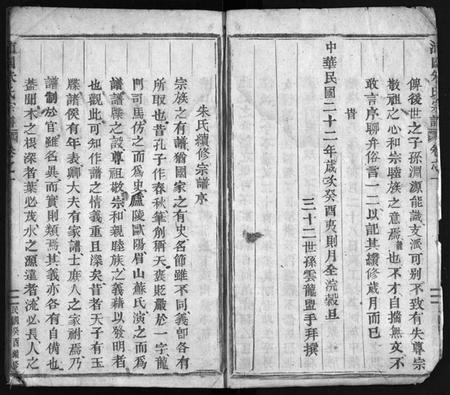 俾後世之子孫淵源能識支派可别不致有失尊宗
敬祖之心和宗睦族之意焉也不才自揣無文不
敢言序聊弁俗言一二以記其續修歲月而已
旹
中華民國二十二年歲次癸酉夷則月全浣穀旦
三十二世孫雲龍盥手拜撰
朱氏續修宗譜序
宗族之有譜猶國家之有史名節雖不同義卽各有
所取也昔孔子作春秋筆削稱天衮貶嚴於一字龍
門司馬仿之而爲史廬陵歐陽眉山蘇氏演之而爲
譜譜牒之設尊祖敬宗和親睦族之義藉以發明者
也觀此可知作譜之情義重且深矣昔者天子有玉
牒諸侯有年表卿大夫有家譜士庶人之家祔焉乃
譜制於官雖名異而實則類焉其義亦各有自備也
蓋聞木之根深者葉必茂水之源遠者流必長人之
民國癸酉續修